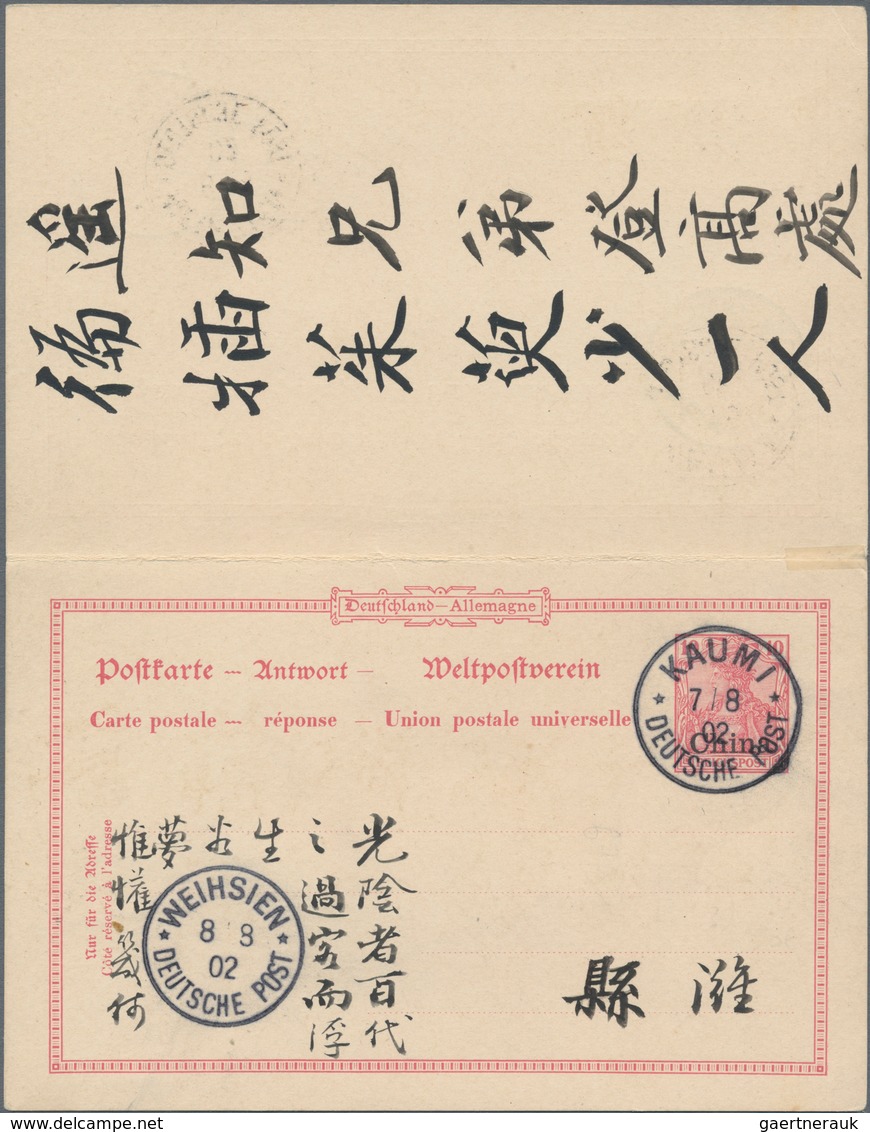 遙知兄弟登高處
徧插茱萸少一人
Deutschland—Allemagne
Postkarte — Antwort — Weltpostverein
Carte postale — réponse — Union postale universelle
10 10
China
KAUMI
7/8
02
DEUTSCHE POST
光陰者百代
之過客而浮
生
若
夢
惟懽幾何
Nur für die Adresse
Côté réservé à l'adresse
WEIHSIEN
8 8
02
DEUTSCHE POST
濰縣
gaertnerauk